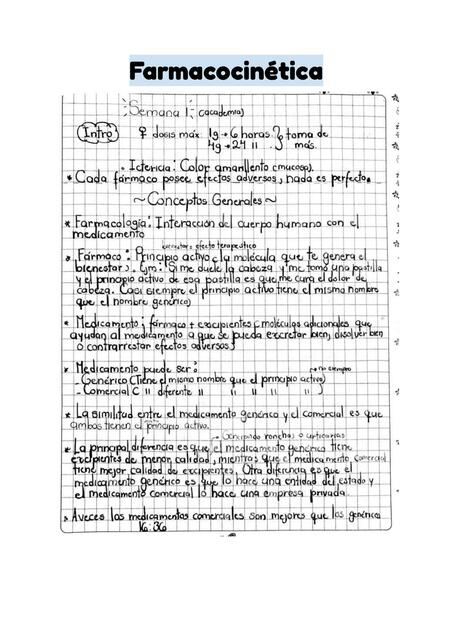 Farmacocinética
Semana 1 (academia)
Intro ♀ dosis máx 1g → 6 horas } toma de
4g → 24 11 } más.
. Ictericia: Color amarillento (mucosa).
* Cada fármaco posee efectos adversos, nada es perfecto.
~ Conceptos Generales ~
* Farmacología: Interacción del cuerpo humano con el
medicamento
bienestar: efecto terapéutico
* Fármaco: Principio activo (la molécula que te genera el
bienestar). Ejm: "Si me duele la cabeza y me tomo una pastilla
y el principio activo de esa pastilla es que me cura el dolor de
cabeza. Casi siempre el principio activo tiene el mismo nombre
que el nombre genérico)
* Medicamento: fármaco + excipientes (moléculas adicionales que
ayudan al medicamento a que se pueda excretar bien, disolver bien
o contrarrestar efectos adversos)
* Medicamento puede ser: → no siempre
- Genérico (Tiene el mismo nombre que el principio activo)
- Comercial ( 11 diferente 11 11 11 11 11 )
* La similitud entre el medicamento genérico y el comercial es que
ambos tienen el principio activo.
→ Generando ronchas o urticarias
* La principal diferencia es que el medicamento genérico tiene
excipientes de menor calidad, mientras que el medicamento comercial
tiene mejor calidad de excipientes. Otra diferencia es que el
medicamento genérico es que lo hace una entidad del estado y
el medicamento comercial lo hace una empresa privada
* Aveces los medicamentos comerciales son mejores que los genéricos
16:36